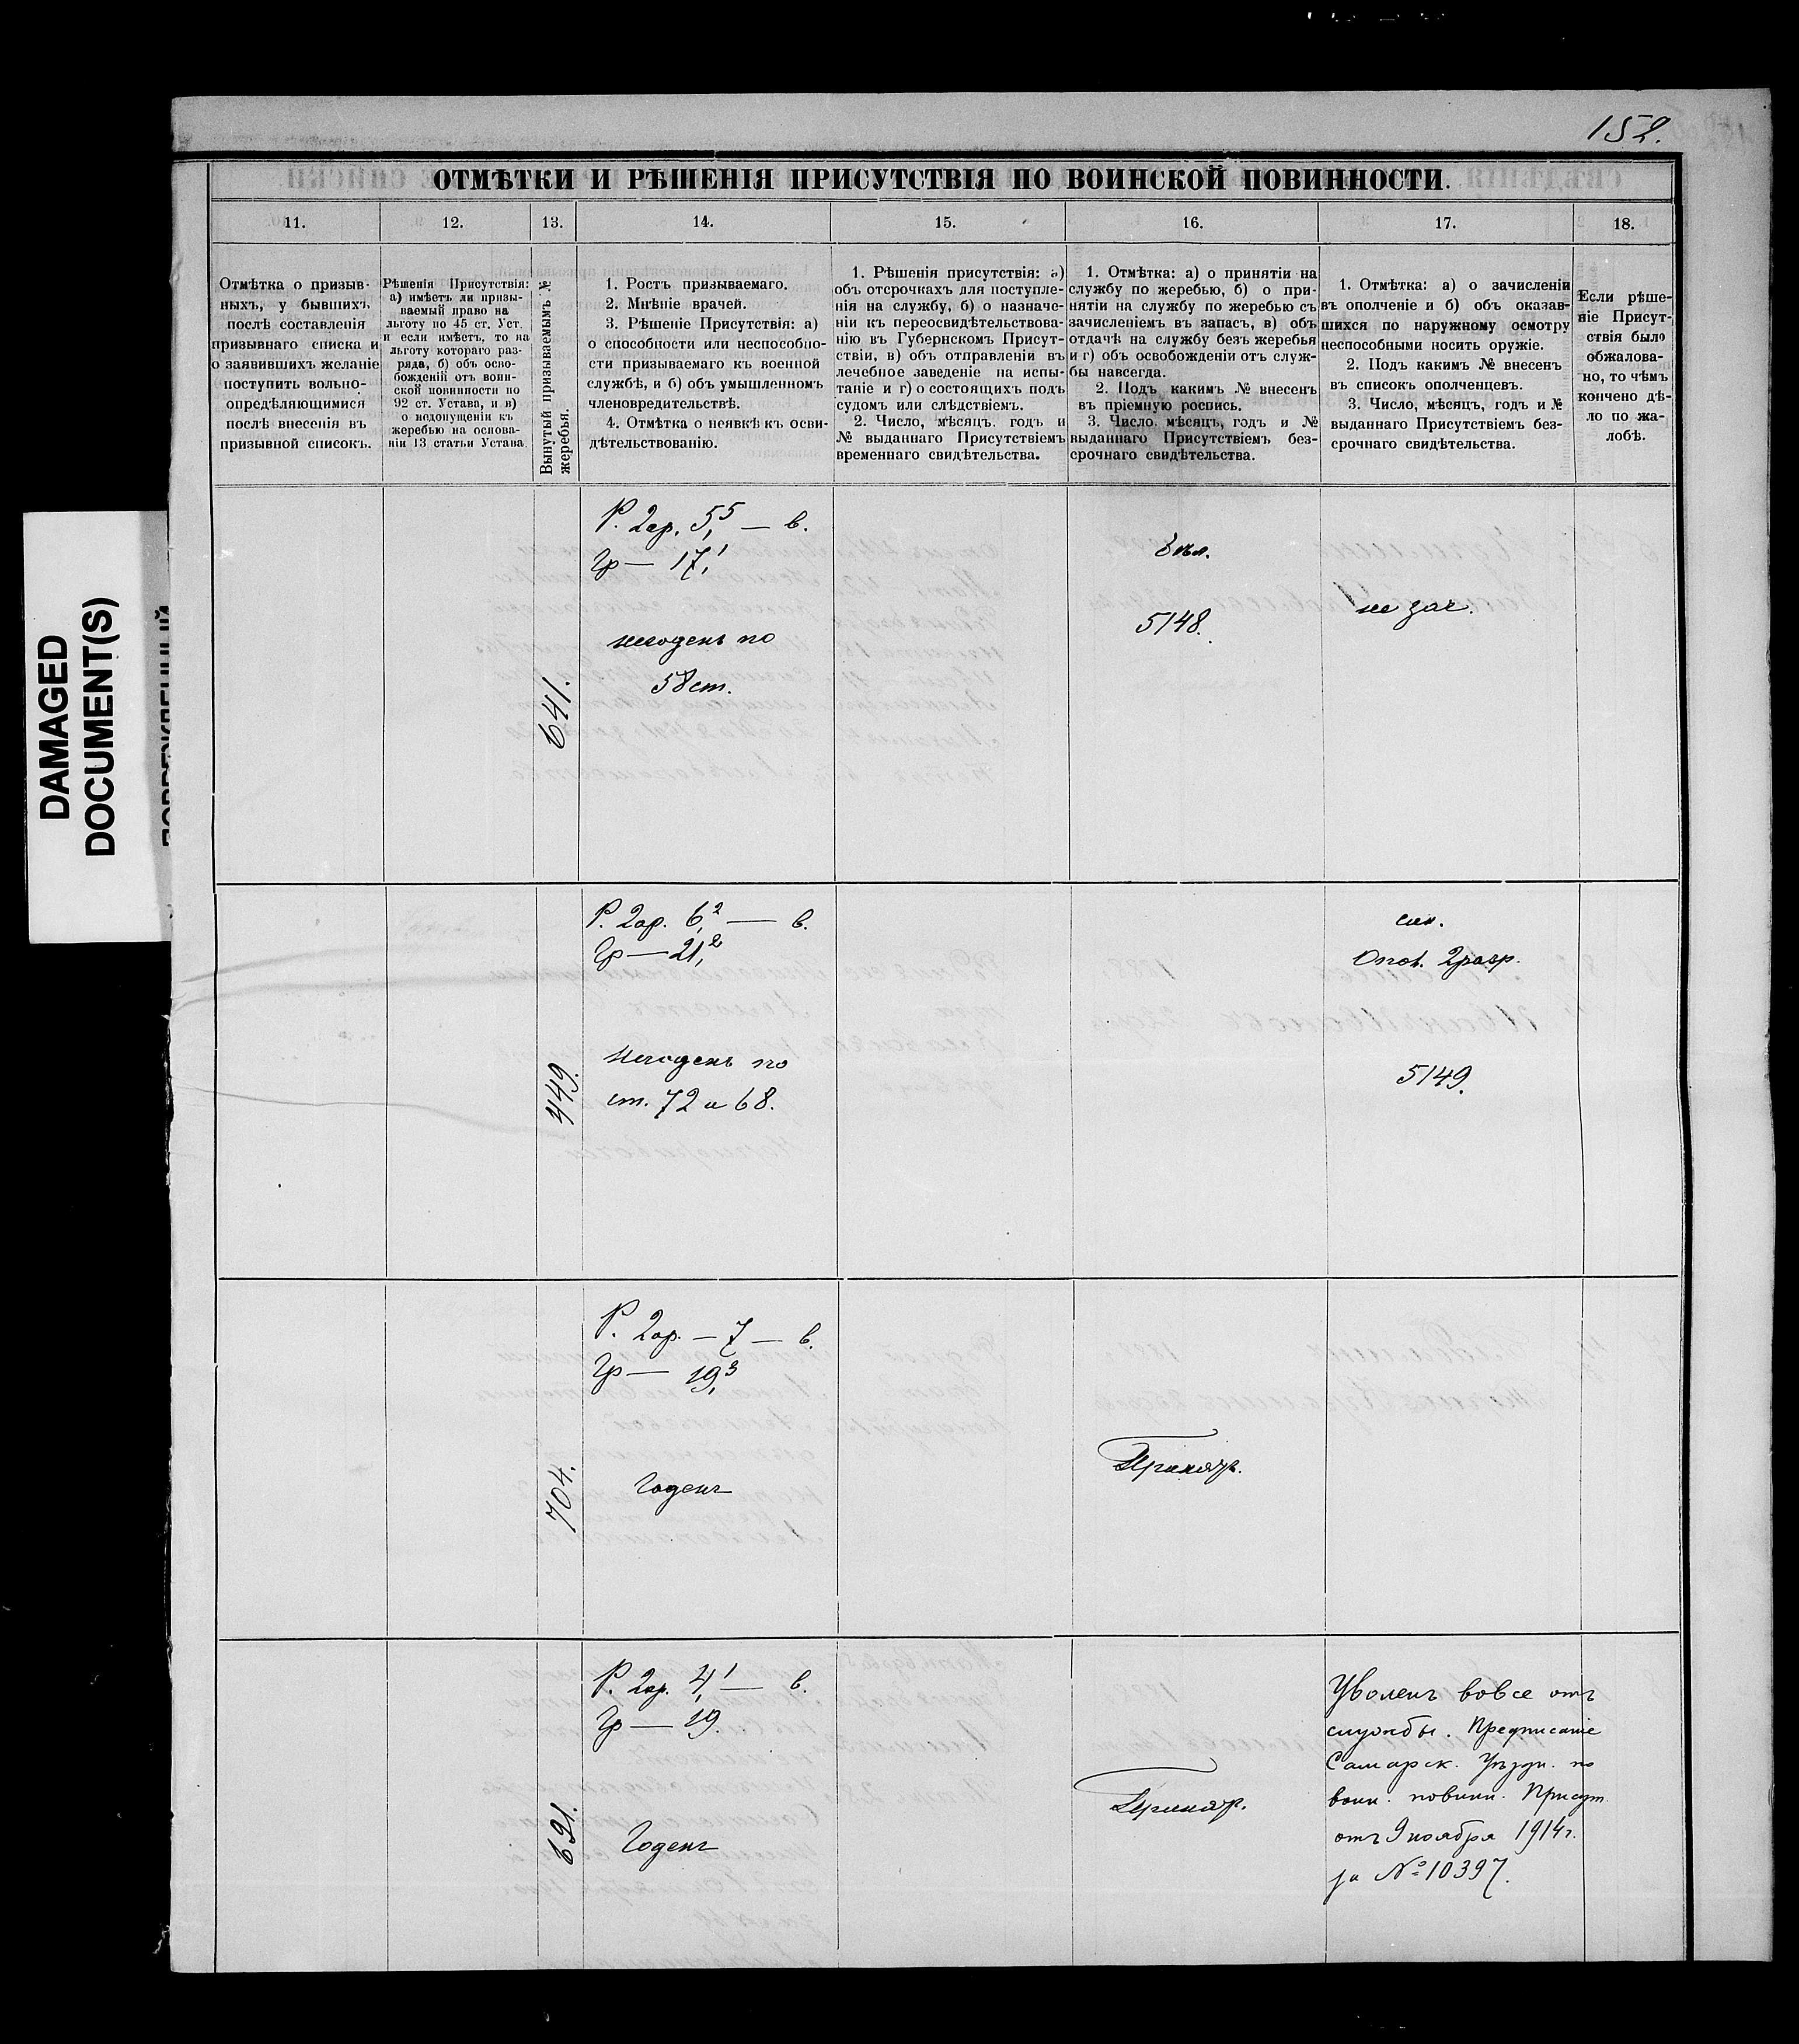 152.
DAMAGED
DOCUMENT(S)
ОТМѢТКИ И РѢШЕНІЯ ПРИСУТСТВІЯ ПО ВОИНСКОЙ ПОВИННОСТИ.
11.
12.
13.
14.
15.
16.
17.
18.
Отмѣтка о призыв-
ныхъ, у бывшихъ
послѣ составленія
призывнаго списка и
о заявившихъ желаніе
поступить вольно-
опредѣляющимися
послѣ внесенія въ
призывной списокъ.
Рѣшенія Присутствія:
а) имѣетъ ли призы-
ваемый право на
льготу по 45 ст. Уст.
и если имѣетъ, то на
льготу котораго раз-
ряда, б) объ осво-
божденій отъ воин-
ской повинности по
92 ст. Устава, и в)
о недопущеніи къ
жеребью на основа-
ніи 13 статьи Устава.
Вынутый призываемымъ №
жеребья.
1. Ростъ призываемаго.
2. Мнѣніе врачей.
3. Рѣшеніе Присутствія: а)
о способности или неспособно-
сти призываемаго къ военной
службѣ, и б) объ умышленномъ
членовредительствѣ.
4. Отмѣтка о неявкѣ къ осви-
дѣтельствованію.
1. Рѣшенія присутствія: а)
объ отсрочкахъ для поступле-
нія на службу, б) о назначе-
ніи къ переосвидѣтельствова-
нію въ Губернскомъ Присут-
ствіи, в) объ отправленіи въ
лечебное заведеніе на испы-
таніе и г) о состоящихъ подъ
судомъ или слѣдствіемъ.
2. Число, мѣсяцъ, годъ и
№ выданнаго Присутствіемъ
временнаго свидѣтельства.
1. Отмѣтка: а) о принятіи на
службу по жеребью, б) о при-
нятіи на службу по жеребью съ
зачисленіемъ въ запасъ, в) объ
отдачѣ на службу безъ жеребья
и г) объ освобожденіи отъ служ-
бы навсегда.
2. Подъ какимъ № внесенъ
въ пріемную роспись.
3. Число, мѣсяцъ, годъ и №
выданнаго Присутствіемъ без-
срочнаго свидѣтельства.
1. Отмѣтка: а) о зачисленіи
въ ополченіе и б) объ оказав-
шихся по наружному осмотру
неспособными носить оружіе.
2. Подъ каким № внесенъ
въ списокъ ополченцевъ.
3. Число, мѣсяцъ, годъ и №
выданнаго Присутствіемъ без-
срочнаго свидѣтельства.
Если рѣше-
ніе Присут-
ствія было
обжалова-
но, то чѣмъ
кончено дѣ-
ло по жа-
лобѣ.
641.
Р. 2ар. 5,5 — в.
Гр — 17,1
негоденъ по
58 ст.
5148.
не зач.
449.
Р. 2ар. 6,2 — в.
Гр — 21,2
Негоденъ по
ст. 72 и 68.
Опол. 2 разр.
5149.
704.
Р. 2ар. — 7 — в.
Гр — 19,3
Годенъ
Принятъ.
621.
Р. 2ар. 4,1 — в.
Гр — 19.
Годенъ
Принятъ.
Уволенъ вовсе отъ
службы. Предписаніе
Самарск. Уѣздн. по
воин. повинн. Присут.
отъ 9 ноября 1914 г.
за № 10397.